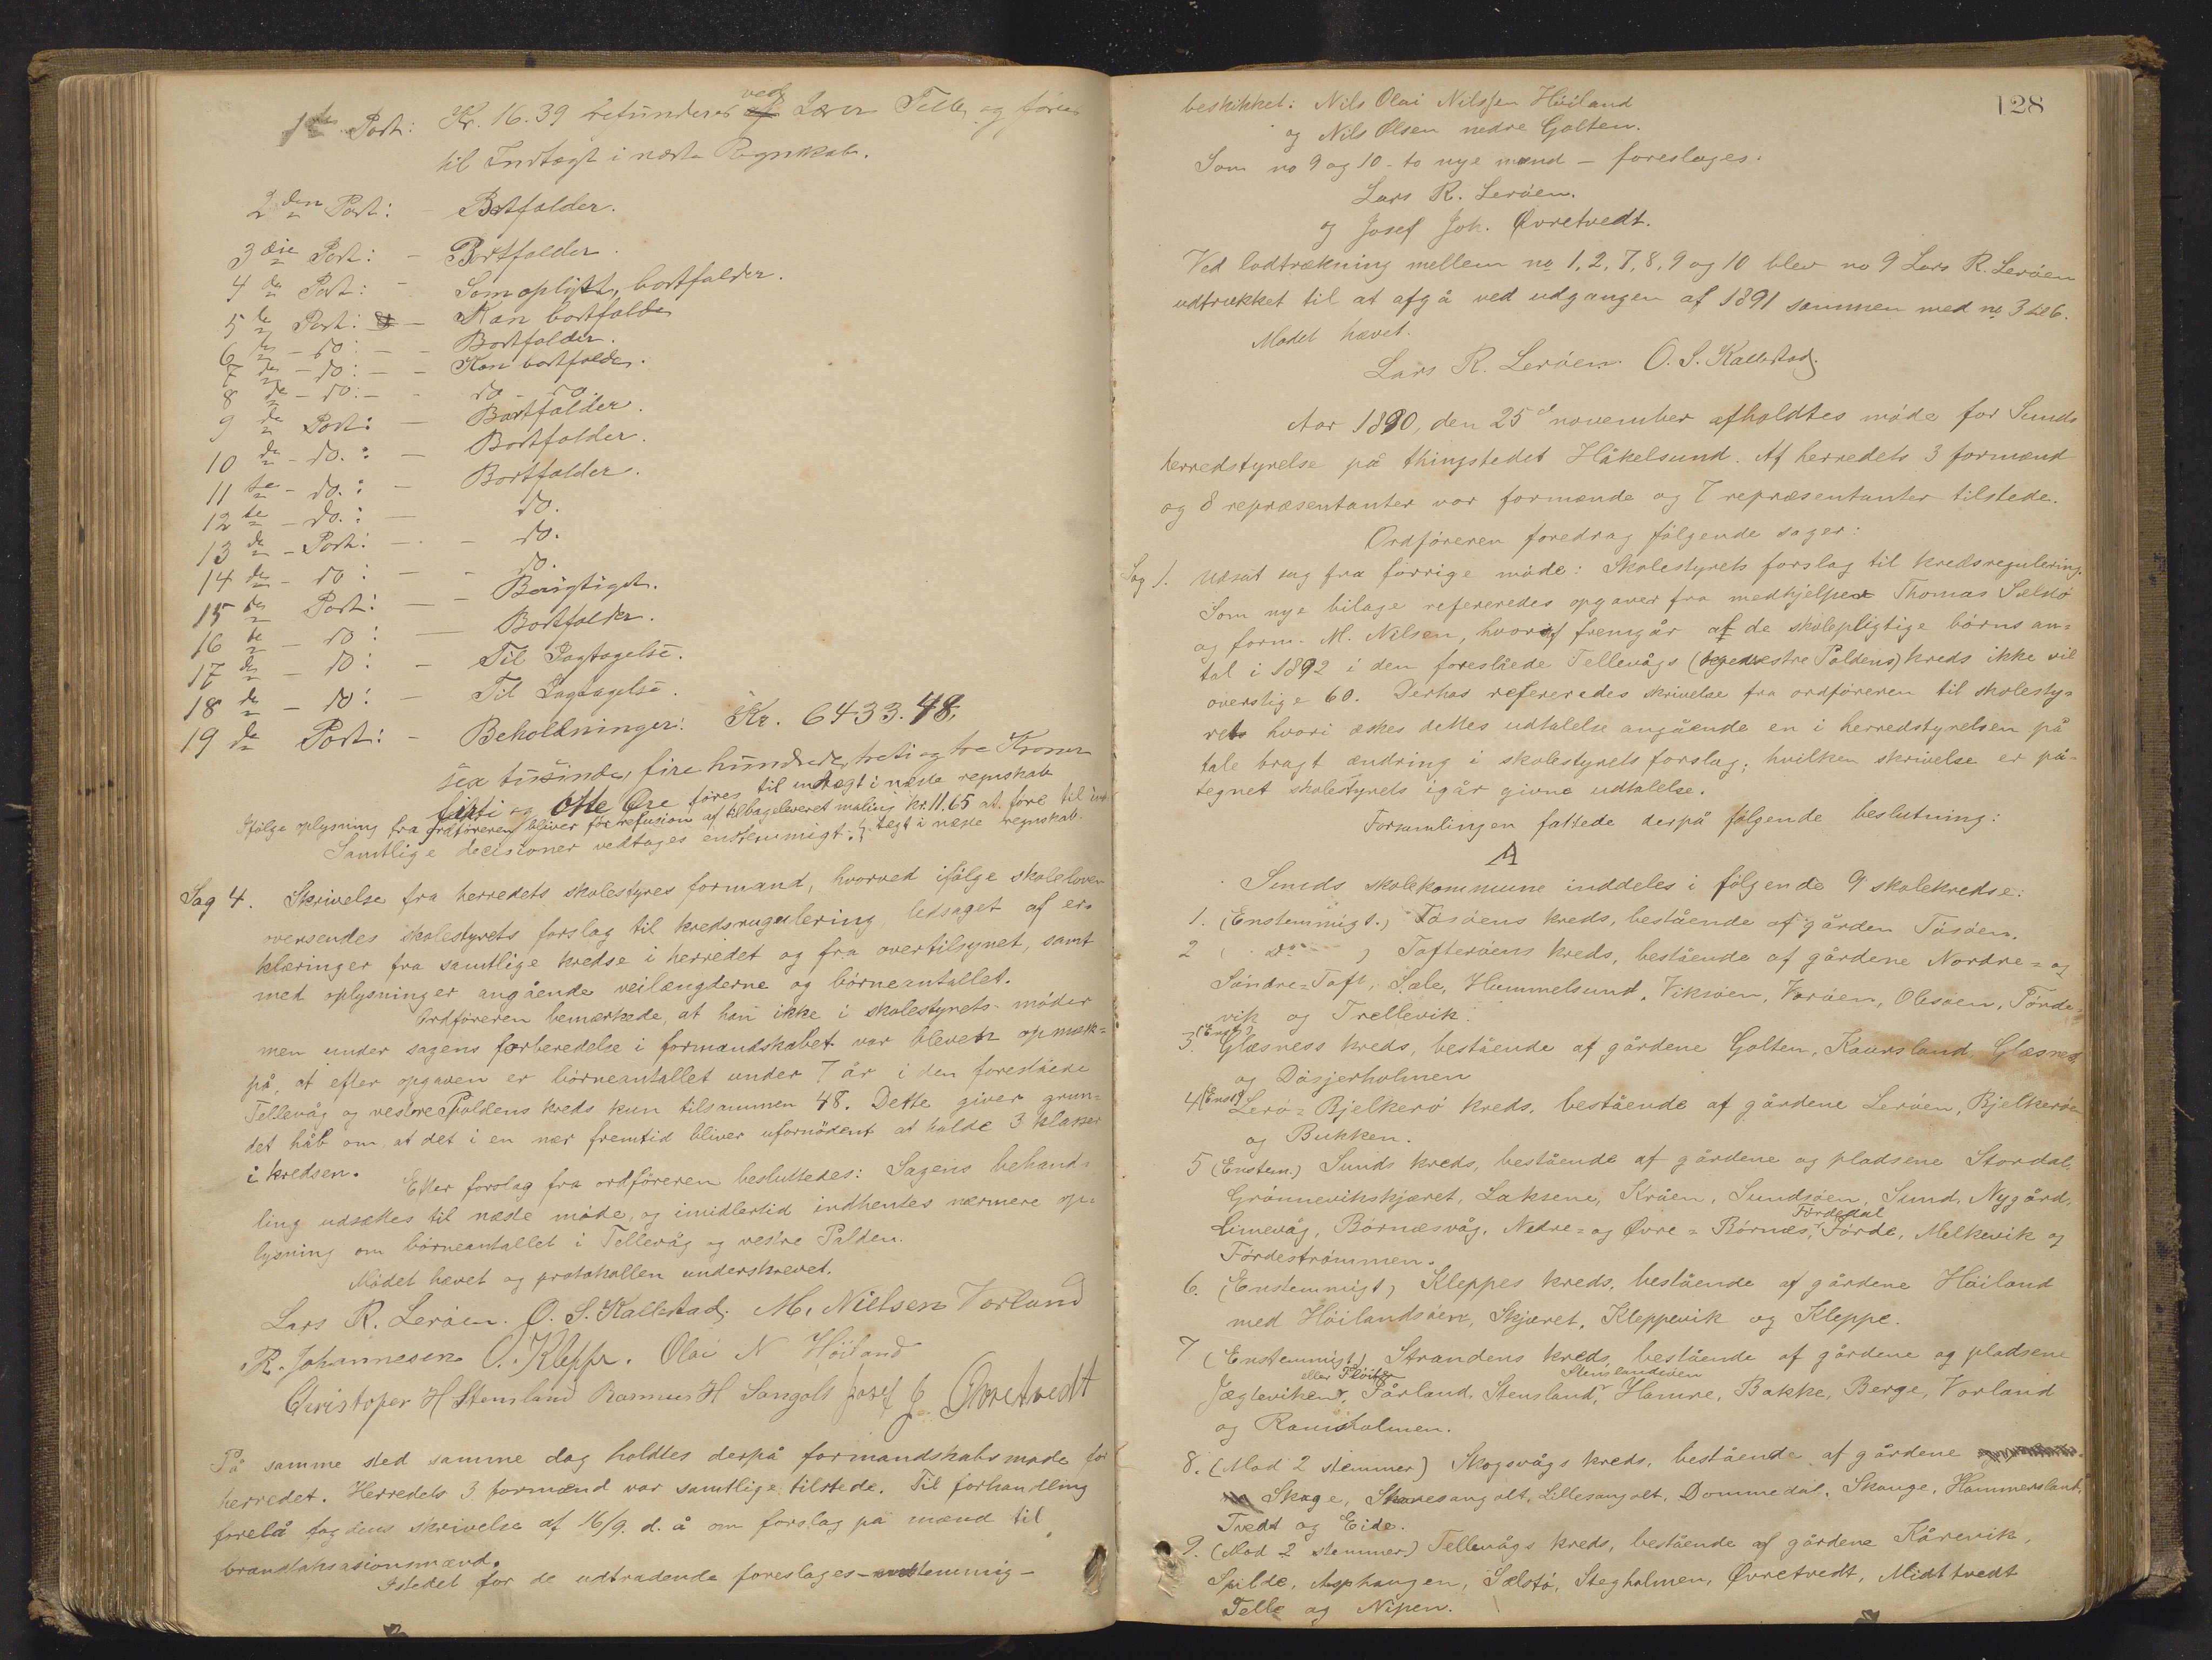 1ste Post: Kr. 16.39 refunderes ved Lærer Telle og føres
til Indtægt i næste Regnskab.
2den Post: - Bortfalder.
3die Post: - Bortfalder.
4de Post: - Som oplyst, bortfalder.
5te Post: - Kan bortfalde
6te - do: - - Bortfalder.
7de - do: - - Kan bortfalde.
8de - do: - - do - do.
9de Post: - Bortfalder.
10de - do.: - Bortfalder.
11te - do.: - Bortfalder.
12te - do.: - do.
13de - Post: - - do.
14de - do: - - do.
15de Post: - - Berigtiget.
16te - do: - Bortfalder.
17de - do: - Til Iagtagelse.
18de - do: - Til Iagtagelse.
19de Post: - Beholdninger: Kr. 6433.48,
sex tusinde, fire hundrede, treti og tre Kroner
førti og otte Øre føres til indtægt i næste regnskab
Ifølge oplysning fra ordføreren bliver for refusion af tilbageleveret maling kr. 11.65 at føre til ind-
Samtlige decisioner vedtages enstemmigt. tegt i næste regnskab.
Sag 4. Skrivelse fra herredets skolestyres formand, hvorved ifølge skoleloven
oversendes skolestyrets forslag til kredsregulering ledsaget af er-
klæringer fra samtlige kredse i herredet og fra overtilsynet, samt
med oplysninger angående veilængderne og børneantallet.
Ordføreren bemærkede, at han ikke i skolestyrets møder
men under sagens forberedelse i formandskabet var bleven opmærk-
på, at efter opgaven er børneantallet under 7 år i den foreslåede
Tellevåg og vestre Poldens kreds kun tilsammen 48. Dette giver grun-
det håb om, at det i en nær fremtid bliver ufornødent at holde 3 klasser
i kredsen.
Efter forslag fra ordføreren besluttedes: Sagens behand-
ling udsættes til næste møde, og imidlertid indhentes nærmere op-
lysning om børneantallet i Tellevåg og vestre Palden.
Mødet hævet og protokollen underskrevet.
Lars R. Lerøen. O. S. Kallestad. M. Nielsen Vorland
R. Johannesen O. Kleppe. Olai N Høiland
Christoper H Stensland Rasmus H Sangolt Josef J. Øvretvedt
På samme sted samme dag holdtes derpå formandskabsmøde for
herredet. Herredets 3 formænd var samtlige tilstede. Til forhandling
forelå fogdens skrivelse af 16/9 d. å om forslag på mænd til
brandtaksasionsmænd.
Istedet for de udtrædende foreslages - enstemmig -
128
beskikket: Nils Olai Nilssen Høiland
og Nils Olsen nedre Golten.
Som no 9 og 10 - to nye mænd - foreslages.
Lars R. Lerøen.
og Josef Joh. Øvretvedt.
Ved lodtrækning mellem no 1, 2, 7, 8, 9 og 10 blev no 9 Lars R. Lerøen
udtrukket til at afgå ved udgangen af 1891 sammen med no 3 til 6.
Mødet hævet.
Lars R. Lerøen O. S. Kallestad.
Aar 1890, den 25de november afholdtes møde for Sunds
herredstyrelse på thingstedet Håkelsund. Af herredets 3 formænd
og 8 repræsentanter var formænde og 7 repræsentanter tilstede.
Ordføreren foredrag følgende sager:
Sag 1. Udsat sag fra forrige møde: Skolestyrets forslag til kredsregulering.
Som nye bilage refereredes opgaver fra medhjelper Thomas Sælstø
og form. M. Nilsen, hvoraf fremgår at de skolepligtige børns an-
tal i 1892 i den foreslåede Tellevågs (og vestre Poldens) kreds ikke vil
overstige 60. Derhos refereredes skrivelse fra ordføreren til skolesty-
rets hvori æskes dettes udtalelse angående en i herredstyrelsen på
tale bragt ændring i skolestyrets forslag, hvilken skrivelse er på-
tegnet skolestyrets igår givne udtalelse.
Forsamlingen fattede derpå følgende beslutning:
A
Sunds skolekommune inddeles i følgende 9 skolekredse:
1. (Enstemmigt.) Tøsøens kreds, bestående af gården Tøsøen.
2 ( do ) Tofterøens kreds, bestående af gårdene Nordre- og
Søndre-Toft, Sæle, Hummelsund, Viksøen, Vorøen, Olesøen, Tørde-
vik og Trellevik.
3. (Enst.) Glæsness kreds, bestående af gårdene Golten, Kaursland, Glæsness
og Døsjerholmen
4 (Enst.) Lerø-Bjelkerø kreds, bestående af gårdene Lerøen, Bjelkerøen
og Bukken.
5 (Enstem.) Sunds kreds, bestående af gårdene og pladsene Stordal,
Grønnevikskjæret, Laksene, Kråen, Sundsøen, Sund, Nygård,
Limevåg, Børnæsvåg, Nedre- og Øvre-Børnæs, Førdedal Førde, Melkevik og
Førdestrømmen.
6. (Enstemmigt) Kleppes kreds, bestående af gårdene Høiland
med Høilandsøen, Skjæret, Kleppevik og Kleppe.
7 (Enstemmigt) Strandens kreds, bestående af gårdene og pladsene
Jægteviken, eller Fløitis Fårland, Stensland, Stenslandsøen Hamre, Bakke, Berge, Vorland
og Ramsholmen.
8. (Mod 2 stemmer) Skogsvågs kreds, bestående af gårdene
Skoge, Storesangolt, Lillesangolt, Dommedal, Skauge, Hammersland,
Tvedt og Eide.
9. (Mod 2 stemmer) Tellevågs kreds, bestående af gårdene Kårevik,
Spilde, Asphaugen, Sælstø, Stegholmen, Øvretvedt, Midttvedt
Telle og Nipen.